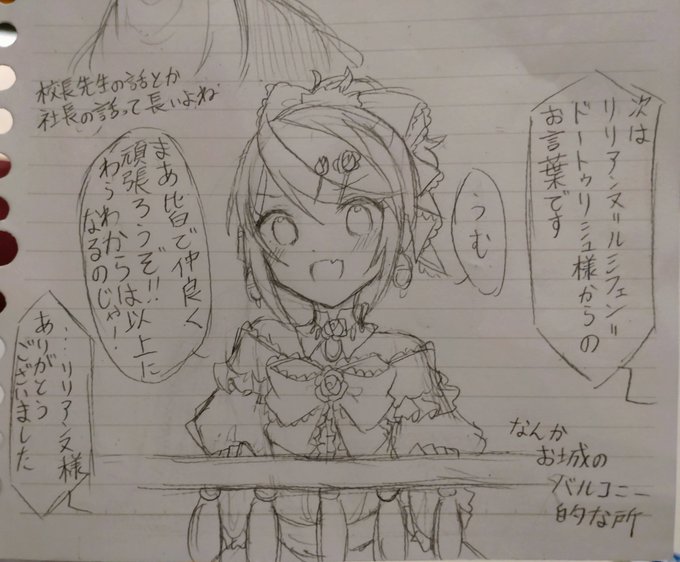 次は
リリアンヌ=ルシフェン=
ドートゥリシュ様からの
お言葉です
うむ
校長先生の話とか
社長の話って長いよね
まあ皆で仲良く
頑張ろうぞ!!
わらわからは以上に
なるのじゃ!
…リリアンヌ様
ありがとう
ございました
なんか
お城の
バルコニー
的な所